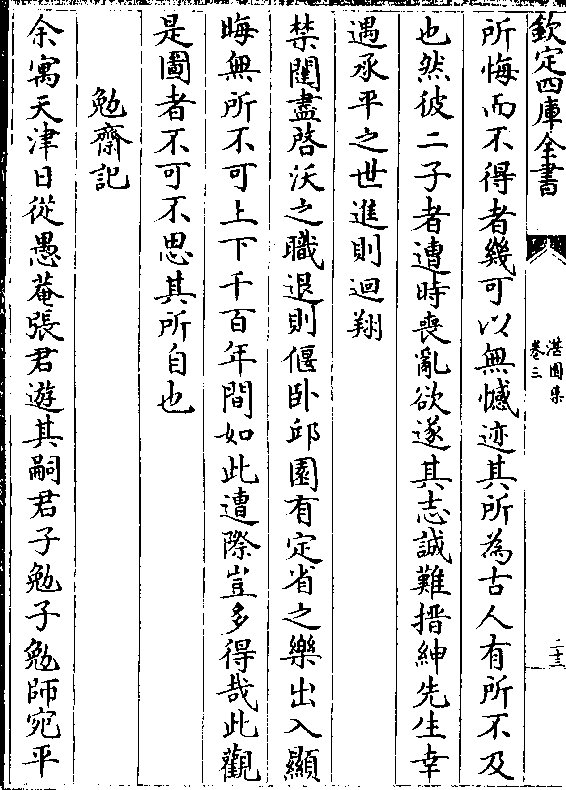 欽定四庫全書
湛園集
卷三
二十三
所悔而不得者幾可以無憾迹其所為古人有所不及
也然彼二子者遭時喪亂欲遂其志誠難搢紳先生幸
遇承平之世進則迴翔
禁闥盡啓沃之職退則偃卧邱園有定省之樂出入顯
晦無所不可上下千百年間如此遭際豈多得哉此觀
是圖者不可不思其所自也
勉齋記
余寓天津日從愚菴張君遊其嗣君子勉子勉師宛平